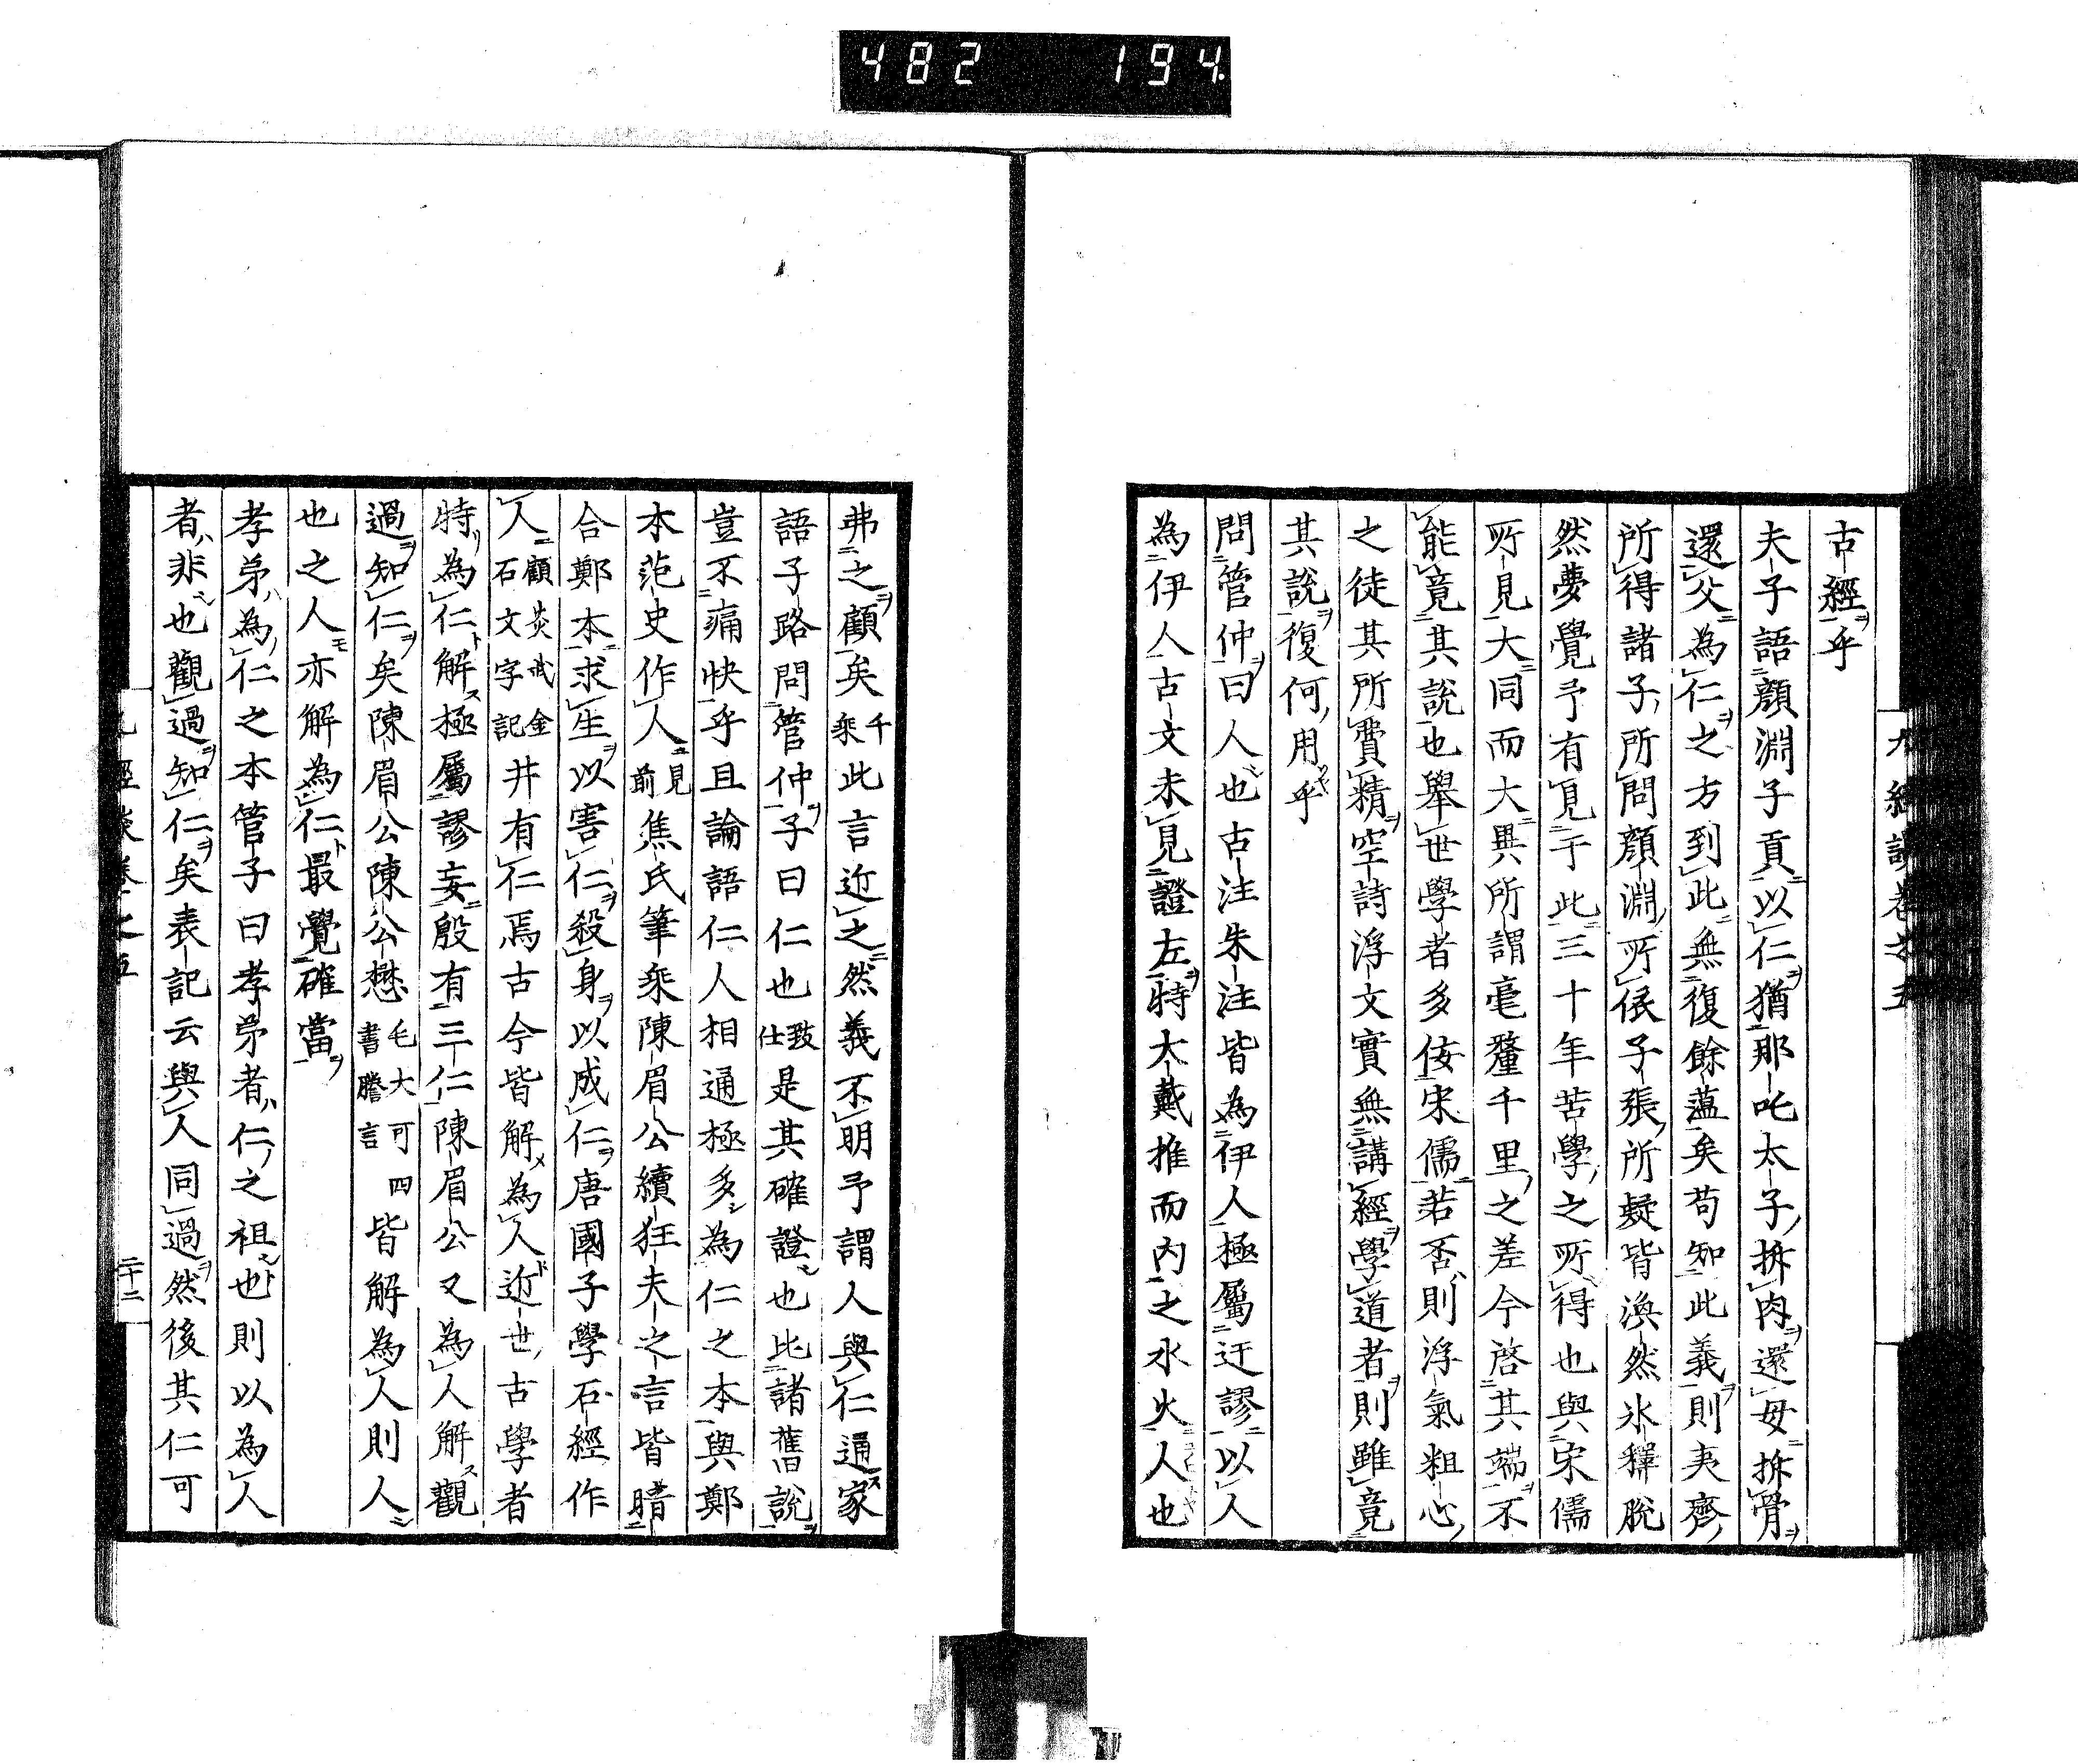 482 194.
古經乎
夫子語顔淵子貢以仁猶那吒太子拆肉還母拆骨
還父為仁之方到此無復餘蘊矣苟知此義則夷齊
所得諸子所問顔淵所依子張所疑皆渙然氷釋脫
然夢覺予有見于此三十年苦學之所得也與宋儒
所見大同而大異所謂毫釐千里之差今啓其端不
能竟其說也舉世學者多佞宋儒若否則浮氣粗心
之徒其所費精空詩浮文實無講經學道者則雖竟
其說復何用乎
問管仲曰人也古注朱注皆為伊人極屬迂謬以人
為伊人古文未見證左特大戴推而內之水火人也
弗之顧矣千乘此言近之然義不明予謂人與仁通家
語子路問管仲子曰仁也致仕是其確證也比諸舊說
豈不痛快乎且論語仁人相通極多為仁之本與鄭
本范史作人見前焦氏筆乘陳眉公續狂夫之言皆暗
合鄭本求生以害仁殺身以成仁唐國子學石經作
人顧炎武金石文字記井有仁焉古今皆解為人近世古學者
特為仁解極屬謬妄殷有三仁陳眉公又為人解觀
過知仁矣陳眉公陳公懋毛大可四書賸言皆解為人則人
也之人亦解為仁最覺確當
孝弟為仁之本管子曰孝弟者仁之祖也則以為人
者非也觀過知仁矣表記云與人同過然後其仁可
二十二